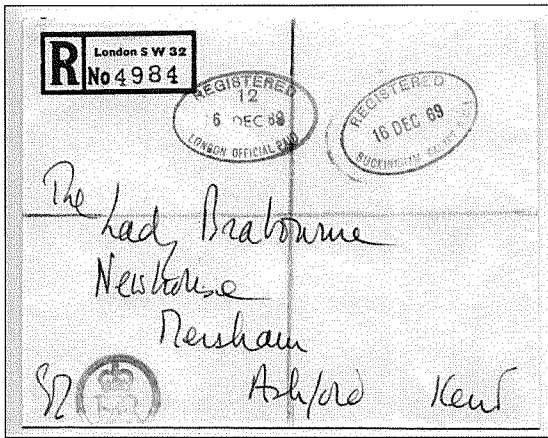 R
London S W 32
No 4984
REGISTERED
12
6 DEC 69
LONDON OFFICIAL PAID
REGISTERED
16 DEC 69
BUCKINGHAM
The
Lady Brabourne
Newhouse
Mersham
Ashford Kent